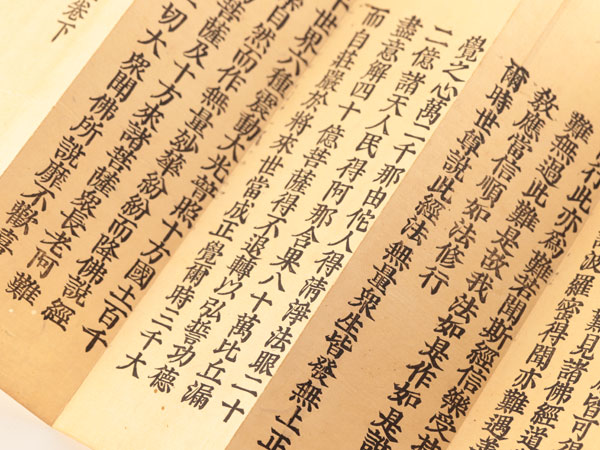 皆可得
難見諸佛經道
波羅蜜得聞亦難遇善
行此亦為難若聞斯經信樂受持
難無過此難是故我法如是作如是說
教應當信順如法修行
爾時世尊說此經法無量眾生皆發無上正
覺之心萬二千那由佗人得清淨法眼二十
二億諸天人民得阿那含果八十萬比丘漏
盡意解四十億菩薩得不退轉以弘誓功德
而自莊嚴於將來世當成正覺爾時三千大
世界六種震動大光普照十方國土百千
自然而作無量妙華紛紛而降佛說經
菩薩及十方來諸菩薩眾長老阿難
一切大眾聞佛所說靡不歡喜
卷下